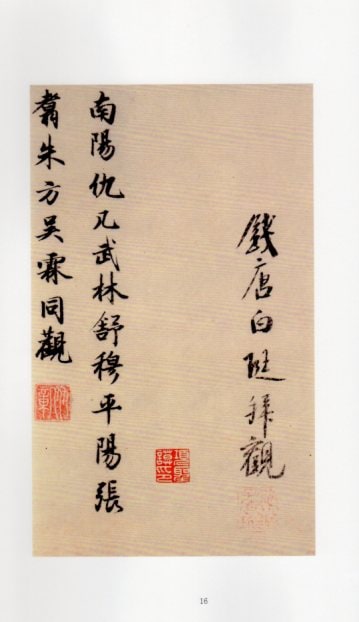 錢唐白珽拜觀
南陽仇凡武林舒穆平陽張
翥朱方吳霖同觀
16